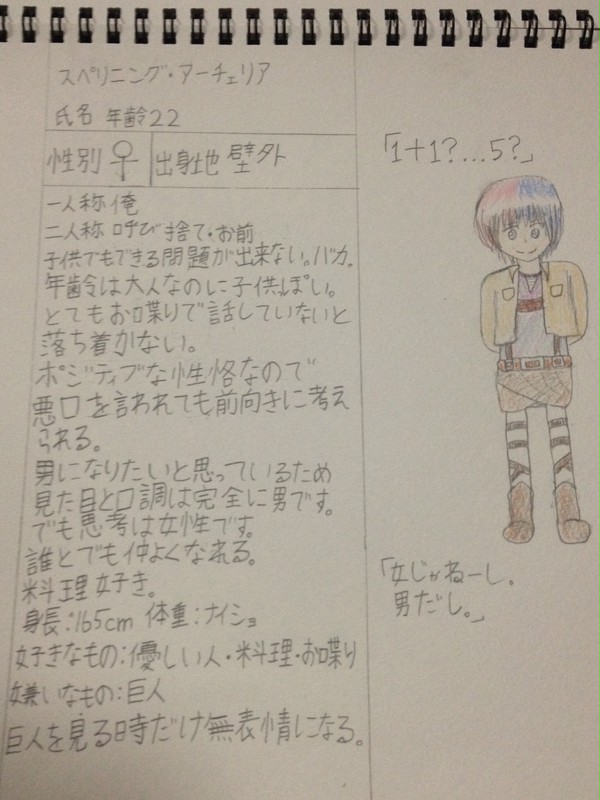 スペリニング・アーチェリア
氏名 年齢22
性別♀ 出身地 壁外
一人称 俺
二人称 呼び捨て・お前
子供でもできる問題が出来ない。バカ。
年齢は大人なのに子供っぽい。
とてもお喋りで話していないと
落ち着かない。
ポジティブな性格なので
悪口を言われても前向きに考え
られる。
男になりたいと思っているため
見た目と口調は完全に男です。
でも思考は女性です。
誰とでも仲よくなれる。
料理好き。
身長:165cm 体重:ナイショ
好きなもの:優しい人・料理・お喋り
嫌いなもの:巨人
巨人を見る時だけ無表情になる。
「1+1?...5?」
「女じゃねーし。
男だし。」